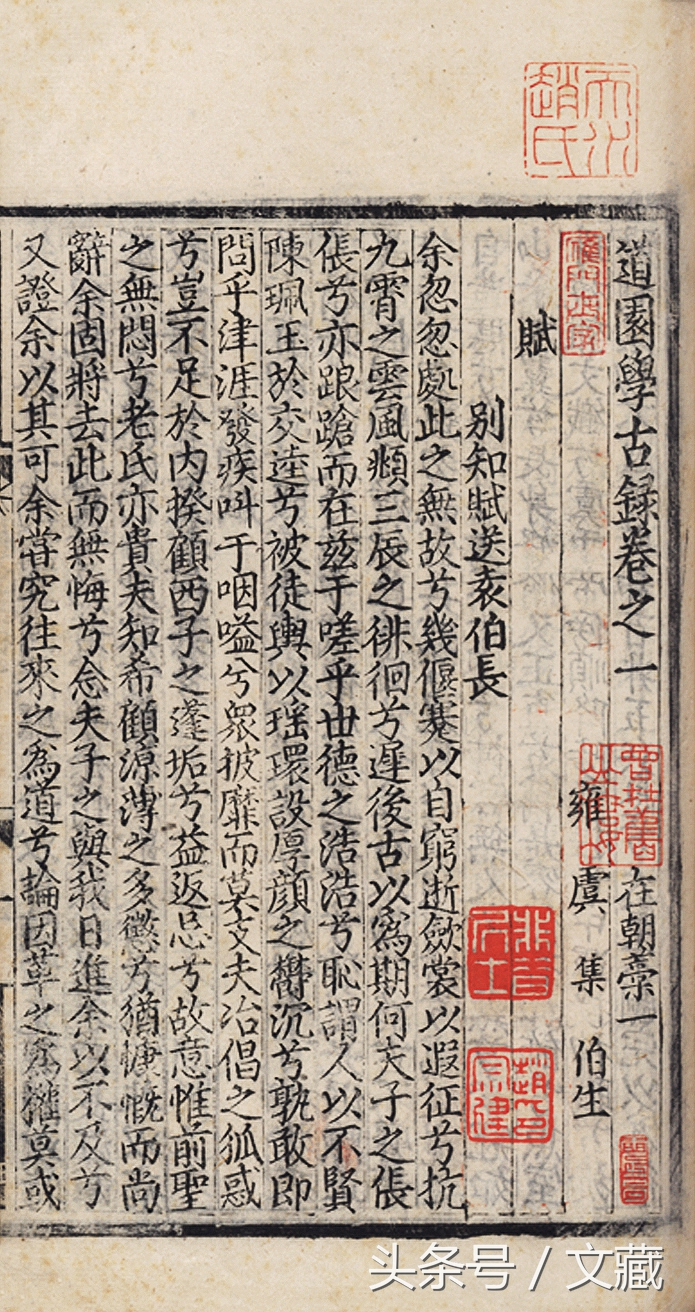 道園學古録卷之一 在朝藁一
雍虞集伯生
賦
别知賦送袁伯長
余忽忽處此之無故兮幾偃蹇以自窮逝斂裳以遐征兮抗
九霄之雲風頫三辰之徘徊兮遲後古以爲期何夫子之倀
倀兮亦踉蹌而在兹于嗟乎世德之浩浩兮恥謂人以不賢
陳珮玉於交逵兮被徒輿以瑶環設厚顔之欝沉兮孰敢即
問乎津涯發疾呌于咽嗌兮衆披靡而莫支夫冶倡之狐惑
兮豈不足於内揆顧西子之蓬垢兮益返忌兮故意惟前聖
之無悶兮老氏亦貴夫知希顧源薄之多愆兮猶慷慨而尚
辭余固將去此而無悔兮念夫子之與我日進余以不及兮
又證余以其可余嘗究往來之爲道兮論因革之爲權莫或
趙氏
頭条号 / 文藏